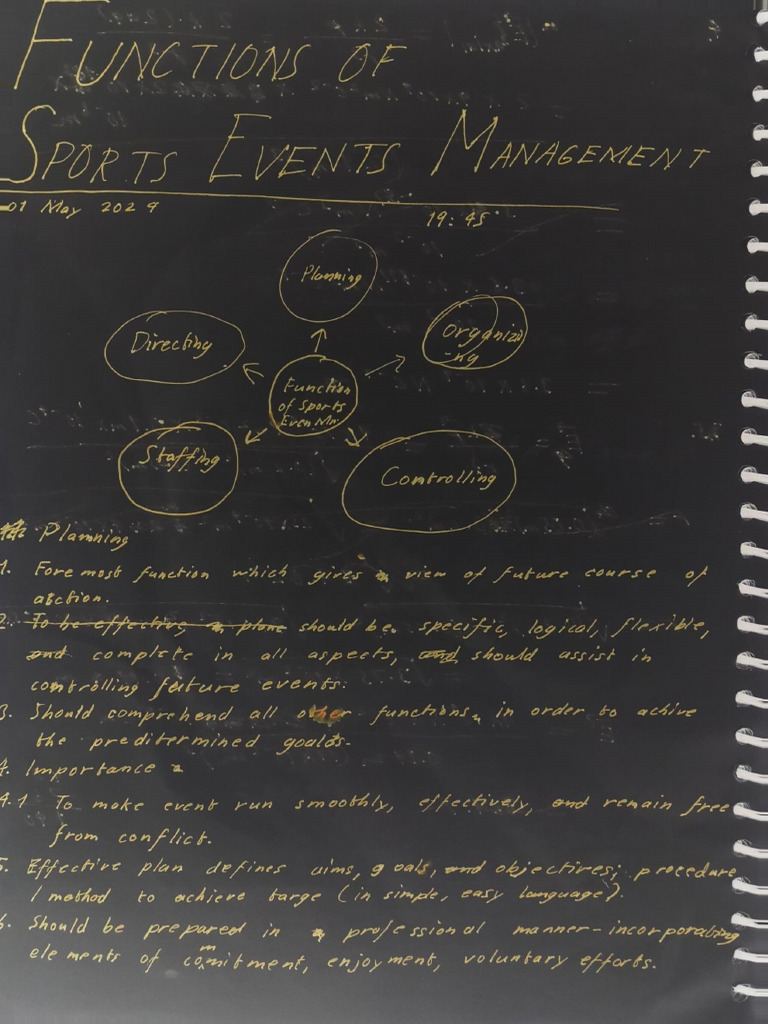 FUNCTIONS OF
SPORTS EVENTS MANAGEMENT
01 May 2024 19:45
Planning
Directing
Organizi
-ng
Function
of Sports
Even Mn
Staffing
Controlling
Planning
1. Foremost function which gives a view of future course of
action.
2. To be effective, a plan should be specific, logical, flexible,
and complete in all aspects, and should assist in
controlling future events.
3. Should comprehend all other functions, in order to achive
the preditermined goals.
4. Importance
4.1 To make event run smoothly, effectively, and remain free
from conflict.
5. Effective plan defines aims, goals, and objectires; procedure
/ method to achieve targe (in simple, easy language).
6. Should be prepared in a professional manner-incorporating
elements of commitment, enjoyment, voluntary efforts.